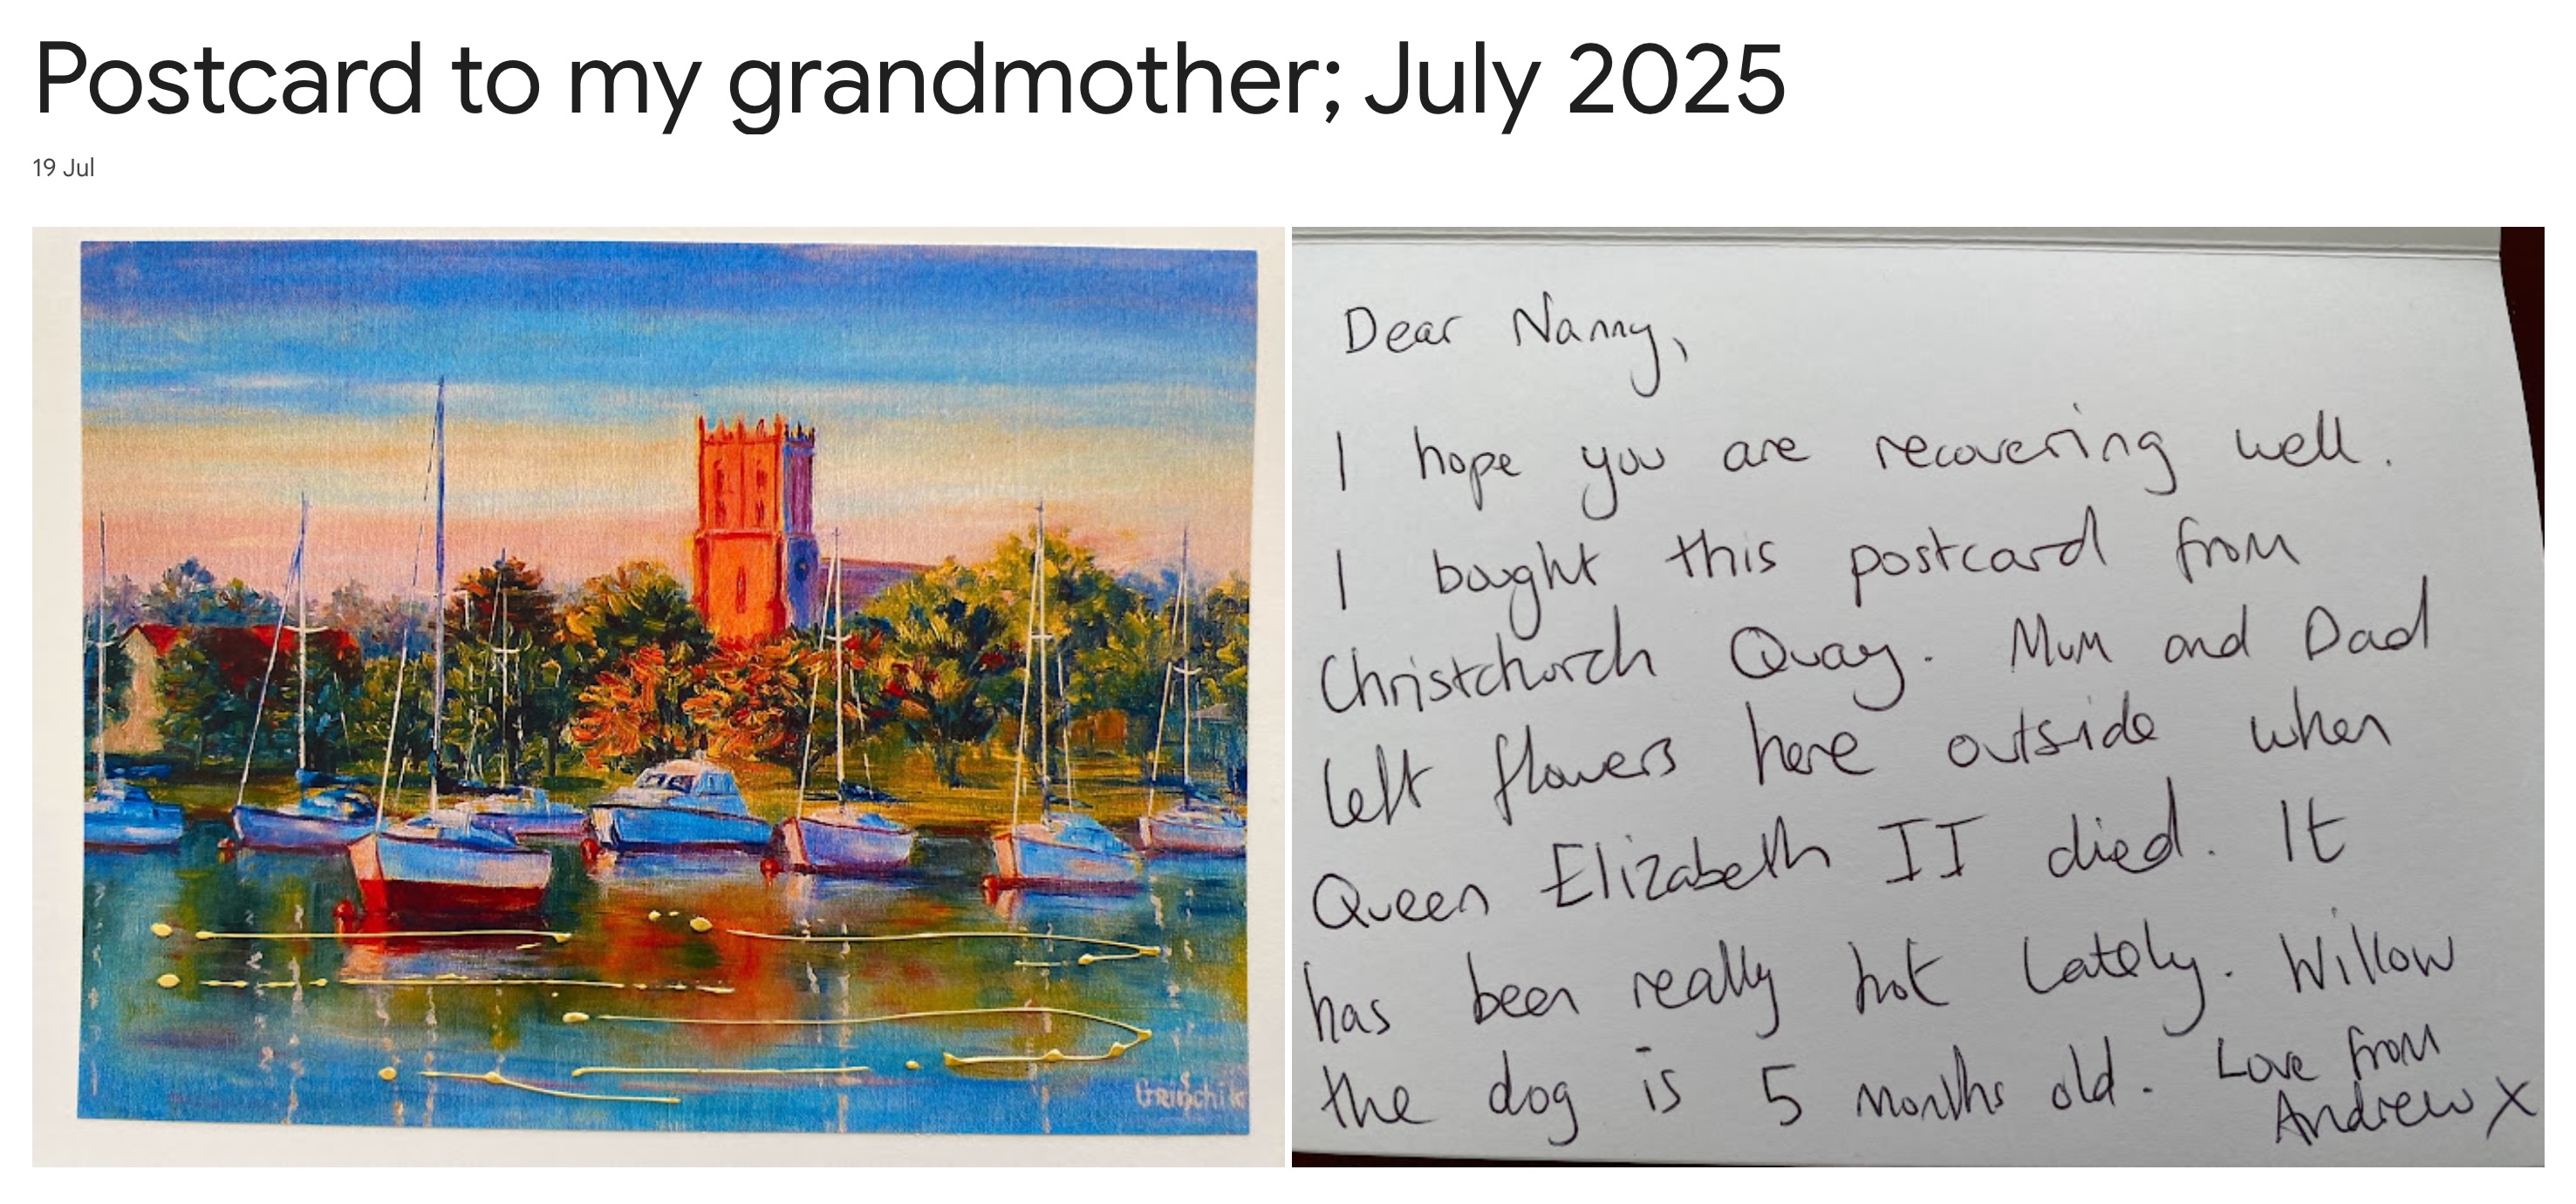 Postcard to my grandmother; July 2025
19 Jul
Grinchik
Dear Nanny,
I hope you are recovering well.
I bought this postcard from
Christchurch Quay. Mum and Dad
left flowers here outside when
Queen Elizabeth II died. It
has been really hot lately. Willow
the dog is 5 months old. Love from
Andrew X